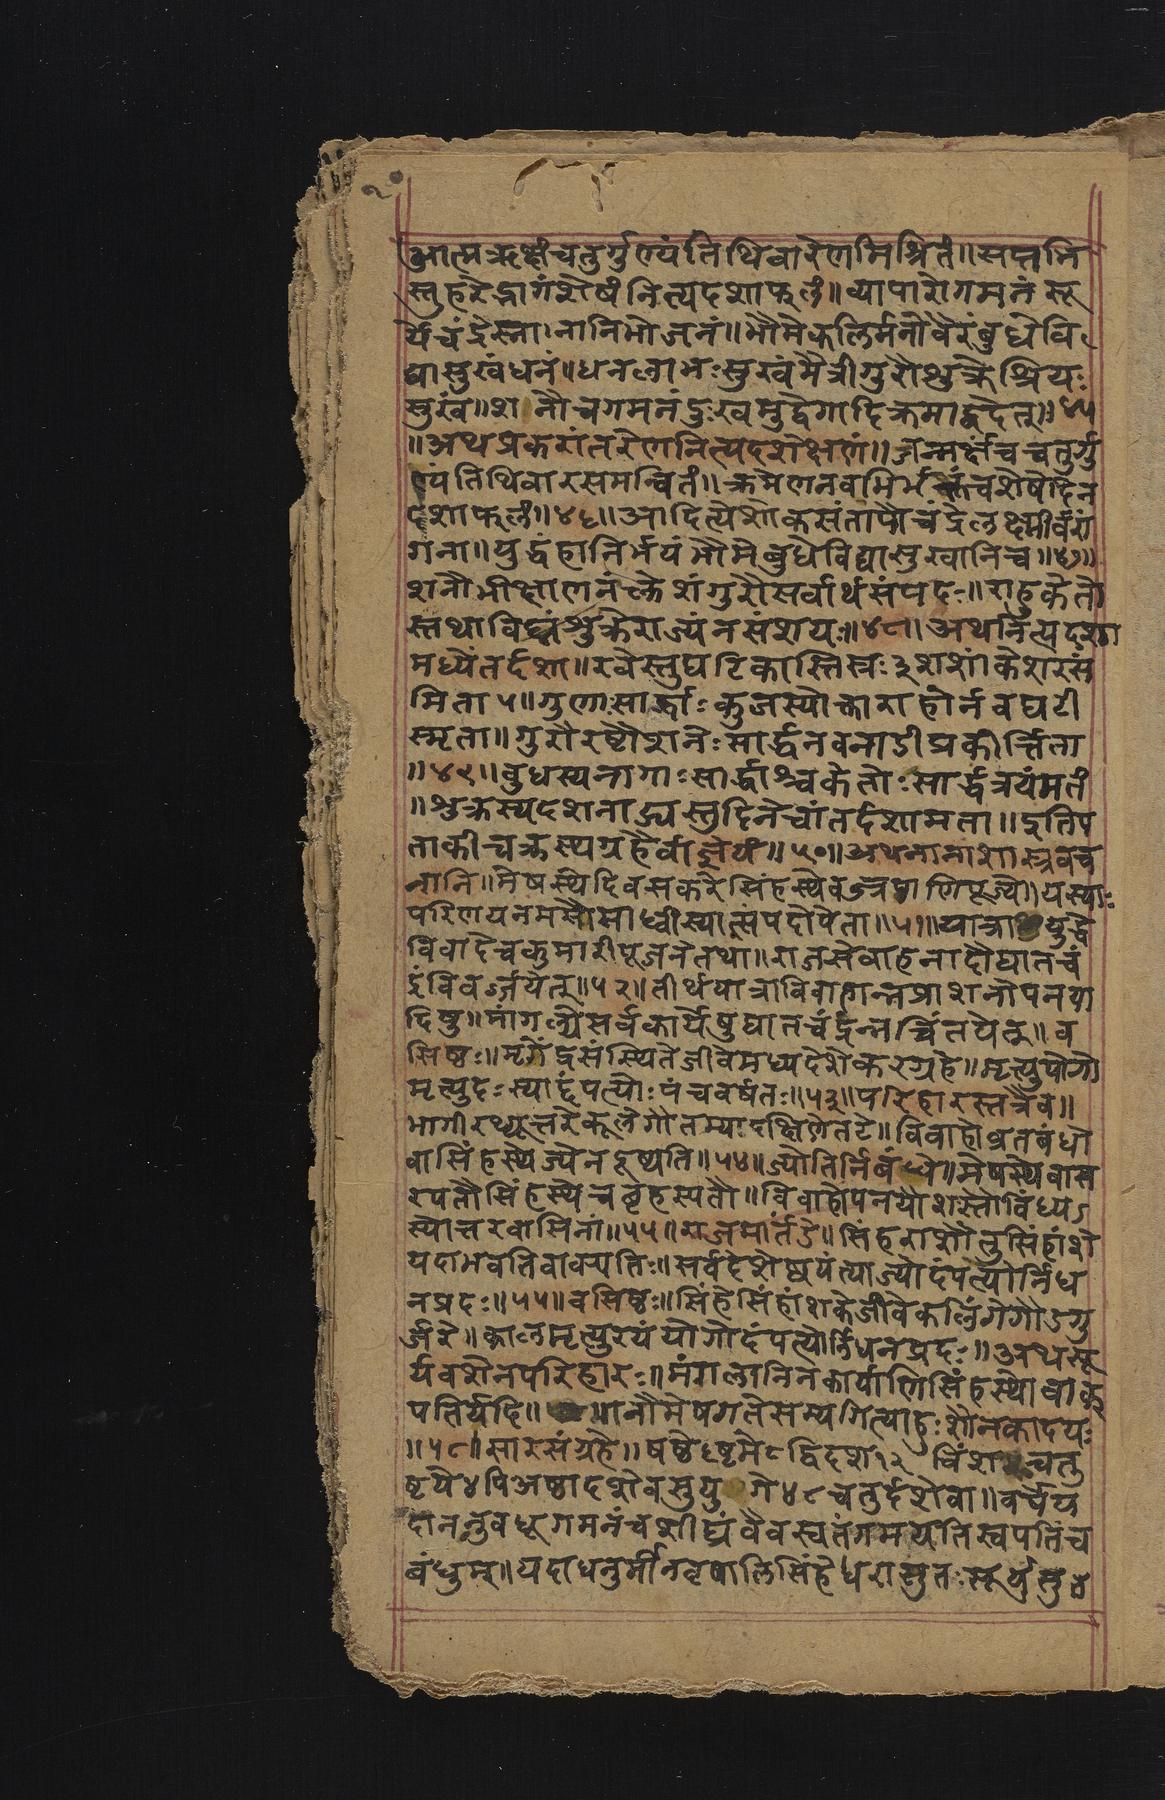 २०
आत्मऋक्षंचतुर्गुण्यंतिथिवारेणमिश्रितं॥सप्तभि
स्तुहरेद्भागंशेषंनित्यदशाफलं॥व्यापारोगमनंसू
र्येचंद्रेस्ना।नानिभोजनं॥भौमेकलिर्मनोवैरंबुधेवि
द्यासुखंधनं॥धनलाभःसुखंमैत्रीगुरौशुक्रेश्रियः
सुखं॥श नौचगमनंदुःखमुद्वेगादिक्रमाद्वदेत्॥४५
॥अथप्रकारांतरेणनित्यदशेक्षणं॥जन्मर्क्षंचचतुर्गु
ण्यंतिथिवारसमन्वितं॥क्रमेणनवभिर्भक्तंचशेषेदिन
दशाफलं॥४६॥आदित्येशोकसंतापौचंद्रेलक्ष्मीर्वरां
गना॥युद्धंहानिर्भयंभौमेबुधेविद्यासुखानिच॥४७॥
शनौभीक्ष्णार्णवंक्लेशंगुरौसर्वार्थसंपदः॥राहुकेतौ
स्तथाविघ्नंशुक्रेराज्यंनसंशयः॥४८॥अथनित्यदशा
मध्येंतर्दशा॥रवेस्तुघटिकास्तिस्रः३शशांकेशरसं
मिता५॥गुणाःसार्द्धाःकुजस्योक्ताराहोर्नवघटी
स्मृता॥गुरोरष्टौशनेःसार्द्धनवनाडीप्रकीर्त्तिता
॥४९॥बुधस्यनागाःसार्द्धाश्चकेतोःसार्द्धत्रयंमतं
॥शुक्रस्यदशनाड्यस्तुदिनेचांतर्दशामता॥इतिप
ताकीचक्रस्यग्रहैर्वाज्ञेयं॥५०॥अथनानाशास्त्रवच
नानि॥मेषस्थेदिवसकरेसिंहस्थेवज्रपाणिपूज्ये॥यस्याः
परिणयनमसौसाध्वीस्यात्संपदोपेता॥५१॥यात्रा युद्धे
विवादेचकुमारीपूजनेतथा॥राजसेवाहनादौघातचं
द्रंविवर्ज्जयेत्॥५२॥तीर्थयात्राविवाहान्नप्राशनोपनया
दिषु॥मांगल्येसर्वकार्येषुघातचंद्रंन्नचिंतयेत्॥व
सिष्ठः॥मृगेंद्रसंस्थितेजीवेमध्यदेशेकरग्रहे॥मृत्युयोगो
मृत्युदःस्याद्दंपत्योःपंचवर्षतः॥५३॥परिहारस्तत्रैव॥
भागीरथ्युत्तरेकूलेगौतम्यादक्षिणेतटे॥विवाहोव्रतबंधो
वासिंहस्थेज्येनदूष्यति॥५४॥ज्योतिर्निबंधे॥मेषस्थेवास
रपतौसिंहस्थेचबृहस्पतौ॥विवाहोपनयौशस्तौविंध्य
स्योत्तरवासिनां॥५५॥राजमार्तंडे॥सिंहराशौतुसिंहांशे
यदाभवतिवाक्पतिः॥सर्वदेशेष्वयंत्याज्योदंपत्योर्निध
नप्रदः॥५५॥वसिष्ठः॥सिंहेसिंहांशकेजीवेकलिंगेगौडगु
र्जरे॥कालमृत्युरयंयोगोदंपत्योर्निधनप्रदः॥अथसू
र्यवशेनपरिहारः॥मंगलानिनकार्याणिसिंहस्थोवाक्
पतिर्यदि॥ भानौमेषगतेसम्यगित्याहुःशौनकादयः
॥५८॥सारसंग्रहे॥षष्ठे६ष्टमे८द्विदश१२ विंश चतु
ष्टये४पिअष्टादशेवसुयु गे४८चतुर्दशेवा॥वर्षेय
दाननुवधूगमनंचशीघ्रंवैवस्वतंगमयतिस्वपतिंच
बंधुम्॥यदाधनुर्मीनवृषालिसिंहेधरासुतःसूर्यसु